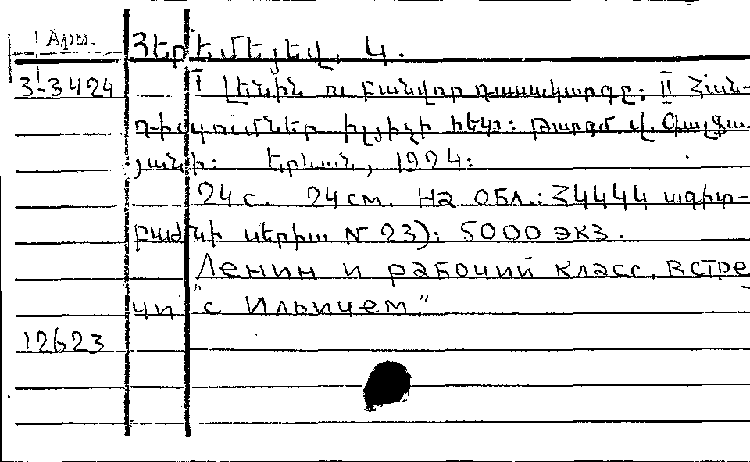 1 Арм.
Հերեմեյեվ, Կ.
3-3424 I Լենին ու բանվոր դասակարգը: II Հան-
դիպումներ իլյիչի հետ: Թարգմ Վ. Փալչա
յանի: Երևան, 1924:
24 с. 24 см. На обл.: ՀԿԿԿԿ ագիտ-
բաժնի սերիա N 23): 5000 экз.
Ленин и рабочий класс. Встре
чи "с Ильичем"
12623